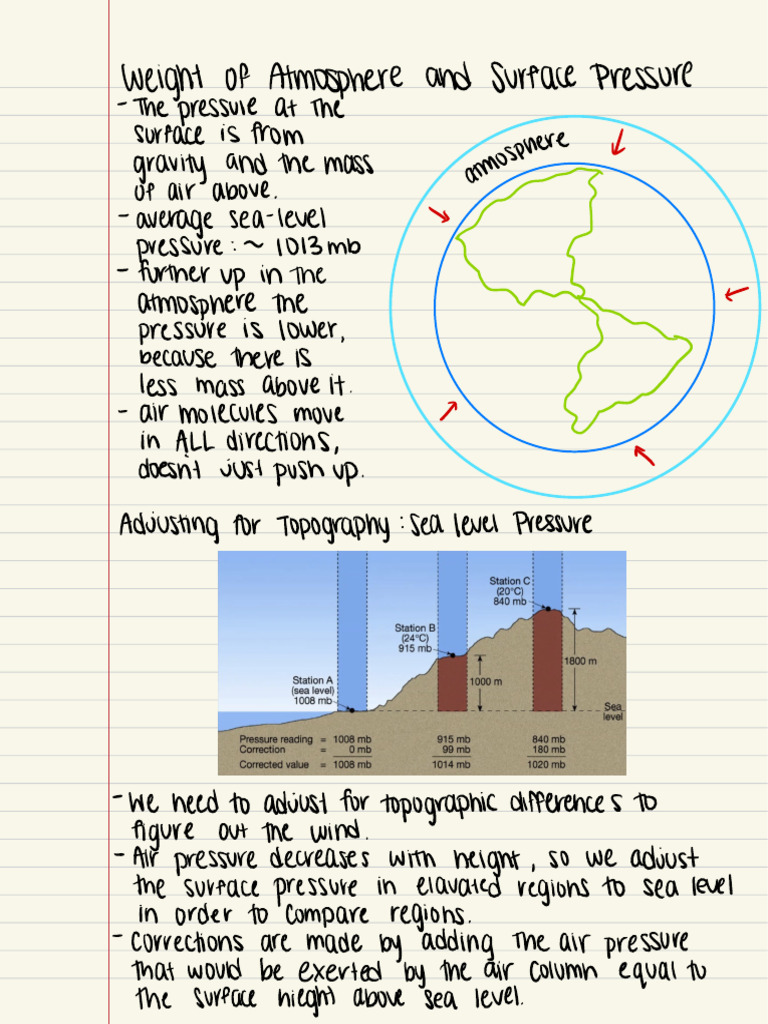 Weight of Atmosphere and Surface Pressure
- The pressure at the
surface is from
gravity and the mass
of air above.
- average sea-level
pressure: ~ 1013 mb
- further up in the
atmosphere the
pressure is lower,
because there is
less mass above it.
- air molecules move
in ALL directions,
doesnt just push up.
atmosphere
Adjusting for Topography: Sea level Pressure
Station C
(20°C)
840 mb
Station B
(24°C)
915 mb
Station A
(sea level)
1008 mb
1000 m
1800 m
Sea
level
Pressure reading = 1008 mb 915 mb 840 mb
Correction = 0 mb 99 mb 180 mb
Corrected value = 1008 mb 1014 mb 1020 mb
- We need to adjust for topographic differences to
figure out the wind.
- Air pressure decreases with height, so we adjust
the surface pressure in elavated regions to sea level
in order to compare regions.
- Corrections are made by adding the air pressure
that would be exerted by the air column equal to
the surface hieght above sea level.